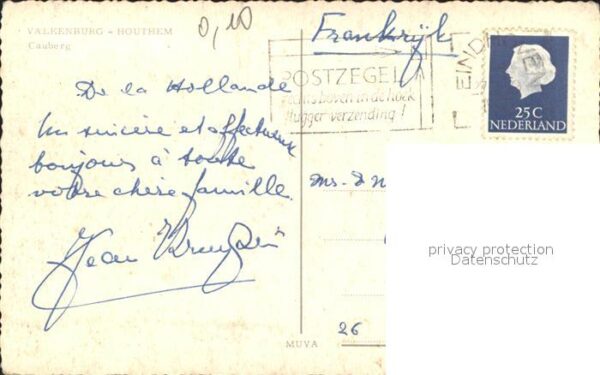 VALKENBURG - HOUTHEM
Cauberg
0,10
Frankrijk
POSTZEGEL
rechts boven in de hoek
vlugger verzending!
EIND
25 C
NEDERLAND
De la Hollande
Un sincère et affectueux
bonjours à toute
votre chère famille.
Jean
Mrs.
privacy protection
Datenschutz
26
MUVA